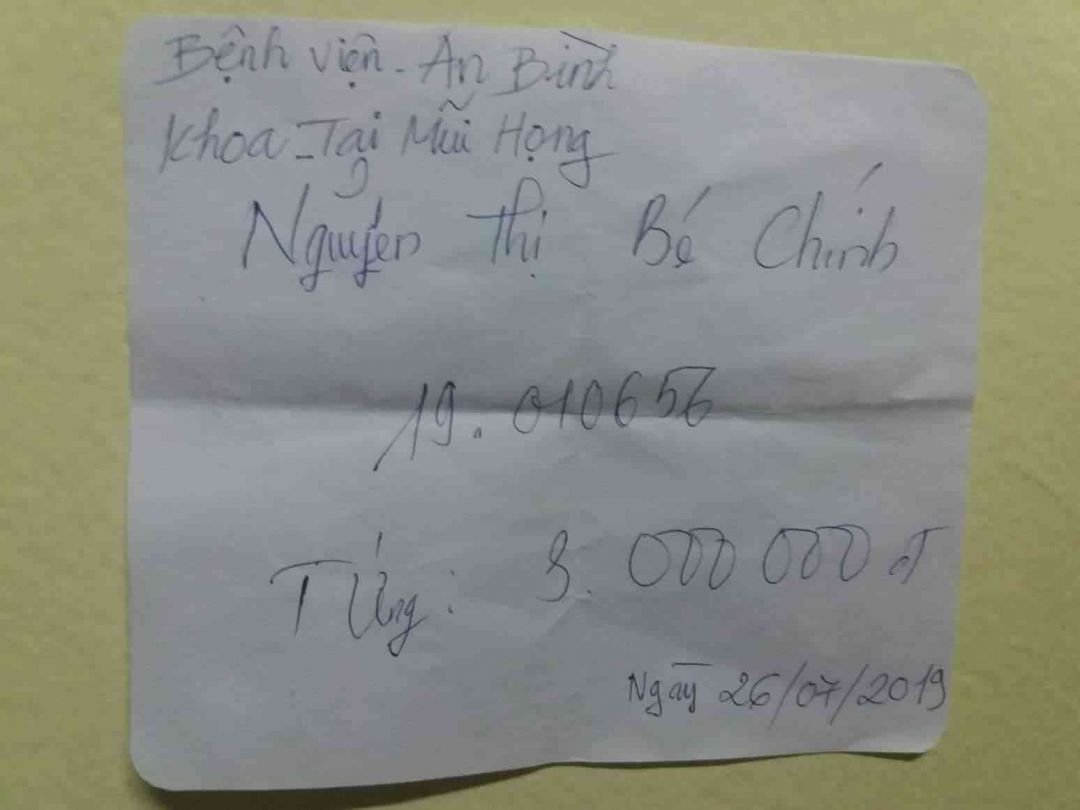 Bệnh viện - An Bình
Khoa - Tai Mũi Họng
Nguyễn Thị Bé Chính
19.010656
T Ứng: 3.000 000 đ
Ngày 26/07/2019